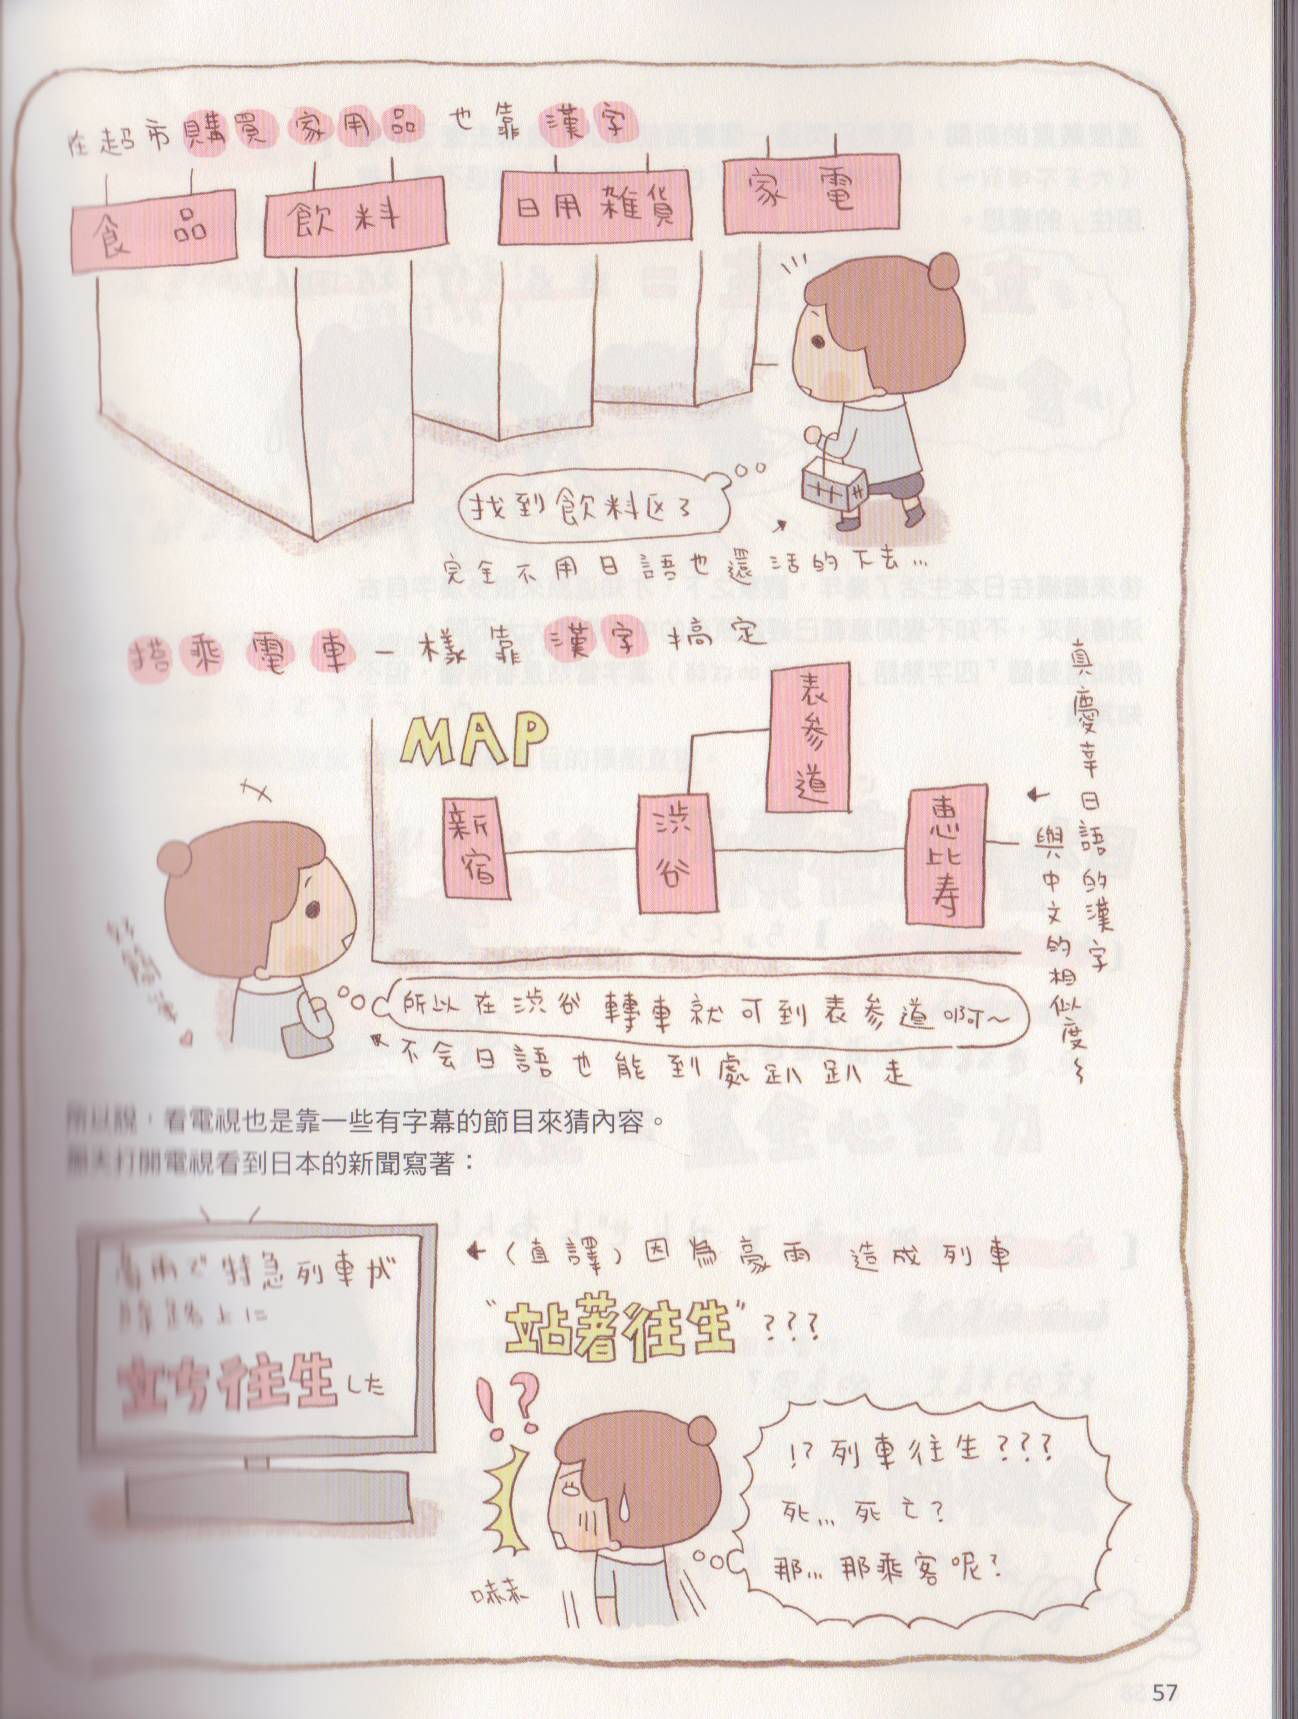 在超市購買家用品也靠漢字
食品
飲料
日用雜貨
家電
找到飲料区了
完全不用日語也還活的下去…
搭乘電車一樣靠漢字搞定
MAP
新宿
渋谷
表参道
恵比寿
真慶幸日語的漢字
與中文的相似度~
所以在渋谷轉車就可到表参道啊~
不会日語也能到處趴趴走
所以說，看電視也是靠一些有字幕的節目來猜內容。
打開電視看到日本的新聞寫著：
豪雨で特急列車が
線路上に
立ち往生した
(直譯)因為豪雨 造成列車
"站著往生"???
!?
!?列車往生???
死…死亡?
那…那乘客呢?
57